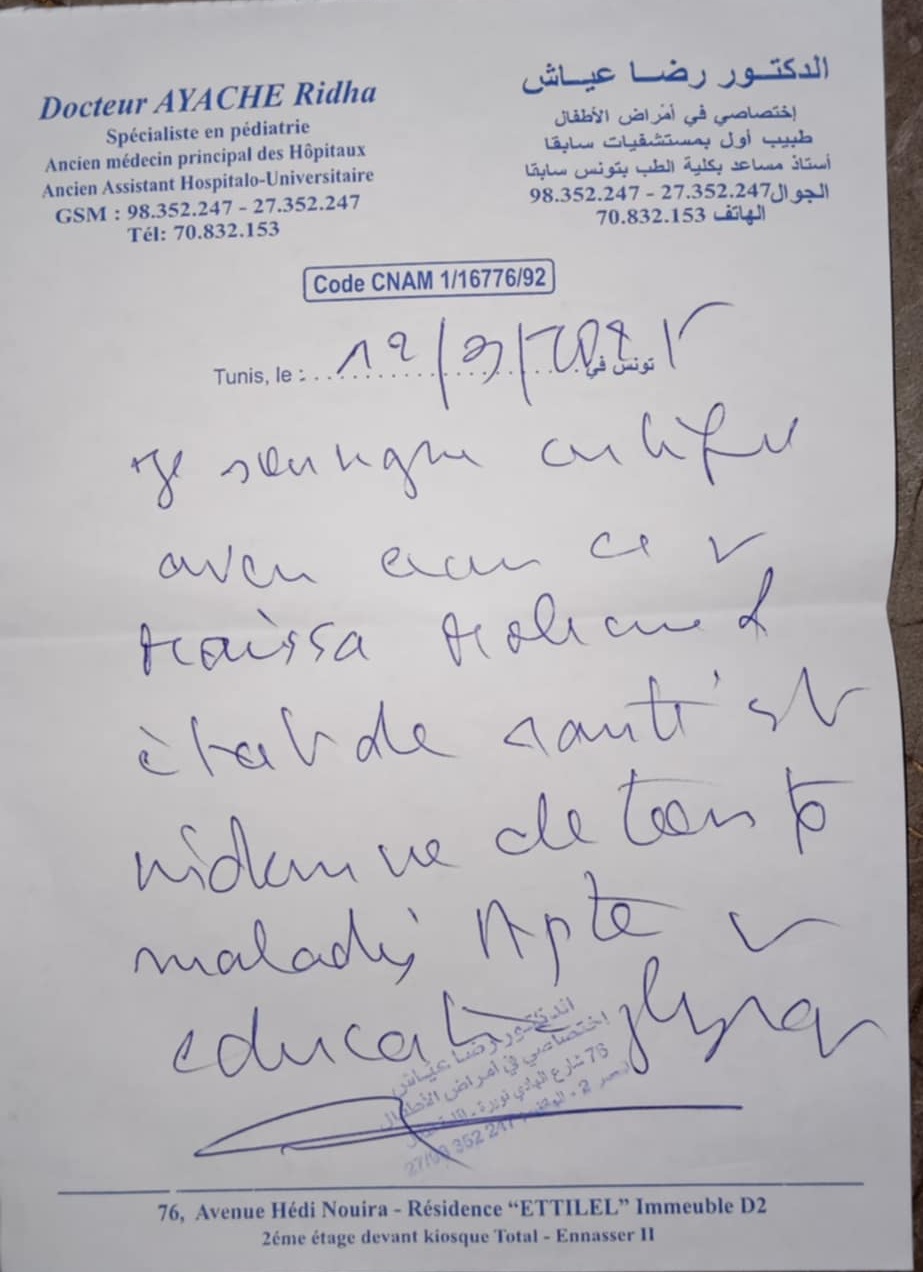 Docteur AYACHE Ridha
Spécialiste en pédiatrie
Ancien médecin principal des Hôpitaux
Ancien Assistant Hospitalo-Universitaire
GSM : 98.352.247 - 27.352.247
Tél: 70.832.153
الدكتور رضا عياش
إختصاصي في أمراض الأطفال
طبيب أول بمستشفيات سابقا
أستاذ مساعد بكلية الطب بتونس سابقا
الجوال 27.352.247 - 98.352.247
الهاتف 70.832.153
Code CNAM 1/16776/92
Tunis, le : تونس في
Je soussigné certifie
avoir examiné ce
Maissa
état de santé est
indemne de toute
maladie Apte
education physique
الدكتور رضا عياش
إختصاصي في أمراض الأطفال
76 شارع الهادي نويرة
27/98 352 247
76, Avenue Hédi Nouira - Résidence “ETTILEL” Immeuble D2
2éme étage devant kiosque Total - Ennasser II